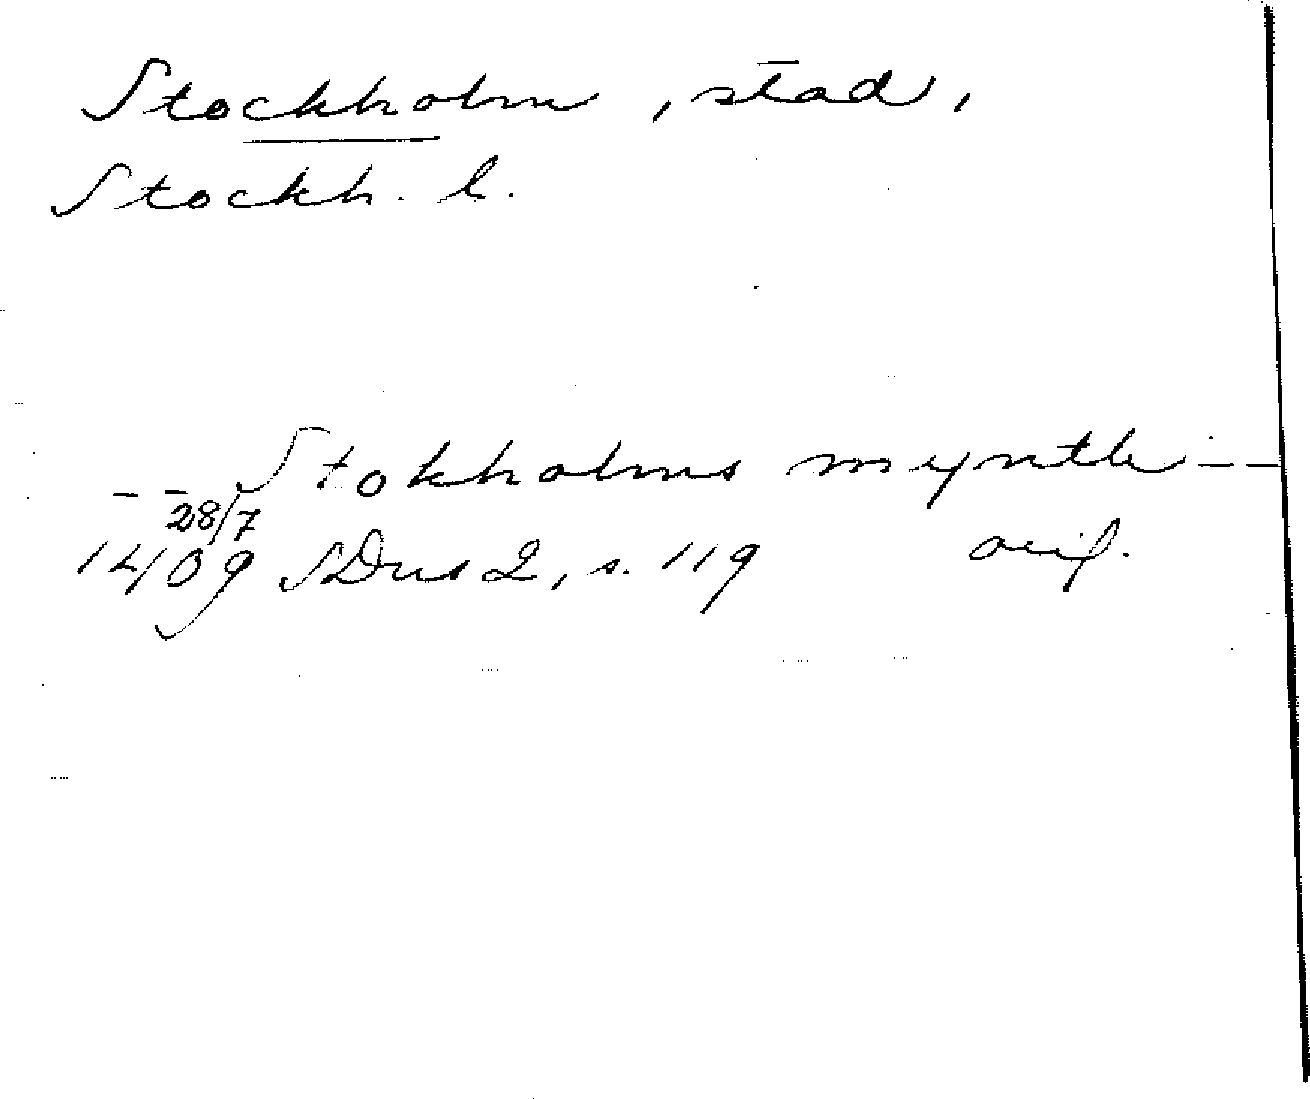 Stockholm, stad,
Stockh. l.
-- Stokholms mynthe --
28/7
1409 SDns 2, s. 119 orig.